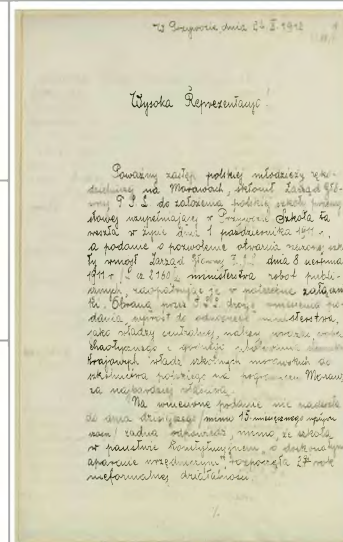 W Przywozie dnia 24 X. 1912
Wysoka Reprezentacyo!
Poważny zastęp polskiej młodzieży ręko-
dzielniczej na Morawach, skłonił Zarząd Głó-
wny T.S.L. do założenia polskiej szkoły przemy-
słowej uzupełniającej w Przywozie. Szkoła ta
weszła w życie dnia 1 października 1911 r.,
a podanie o pozwolenie otwarcia rzeczonej szko-
ły wniósł Zarząd Główny T.S.L. dnia 8 sierpnia
1911 r. / L 2160 / ministerstwa robót publi-
cznych, zaopatrując je w potrzebne załączni-
ki. Obraną przez T.S.L. drogę wniesienia po-
dania wprost do odnośnego ministerstwa,
jako władzy centralnej, należy wobec
chaotycznego i
krajowych władz szkolnych morawskich do
szkolnictwa polskiego na pograniczu Moraw
za najbardziej właściwą.
Na wniesione podanie nie nadeszła
do dnia dzisiejszego mimo 15-miesięcznego
żadna odpowiedź, mimo, że szkoła
w państwie konstytucyjnem, o doskonałym
aparacie urzędniczym, rozpoczęła 2gi rok
nieformalnej działalności.